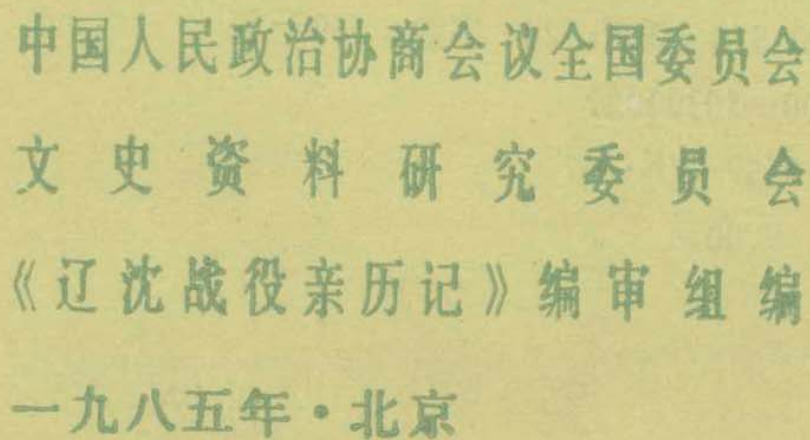 中国人民政治协商会议全国委员会
文史资料研究委员会
《辽沈战役亲历记》编审组编
一九八五年·北京